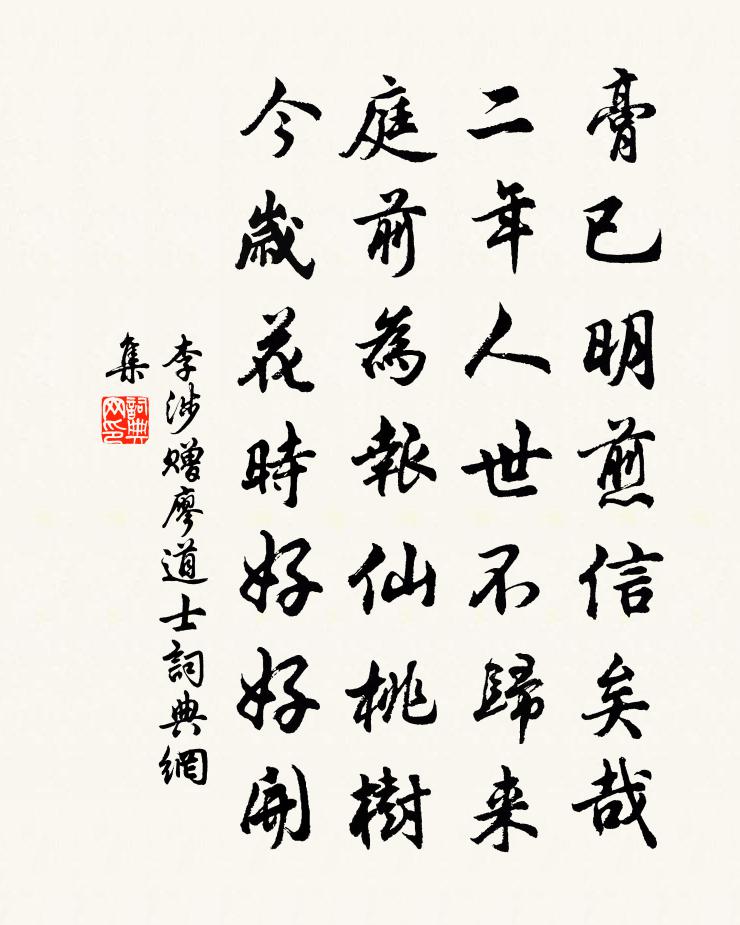 膏已明煎信矣哉
二年人世不歸来
庭前為報仙桃樹
今歲花時好好開
李涉贈廖道士詞典網
集
詞典
网印